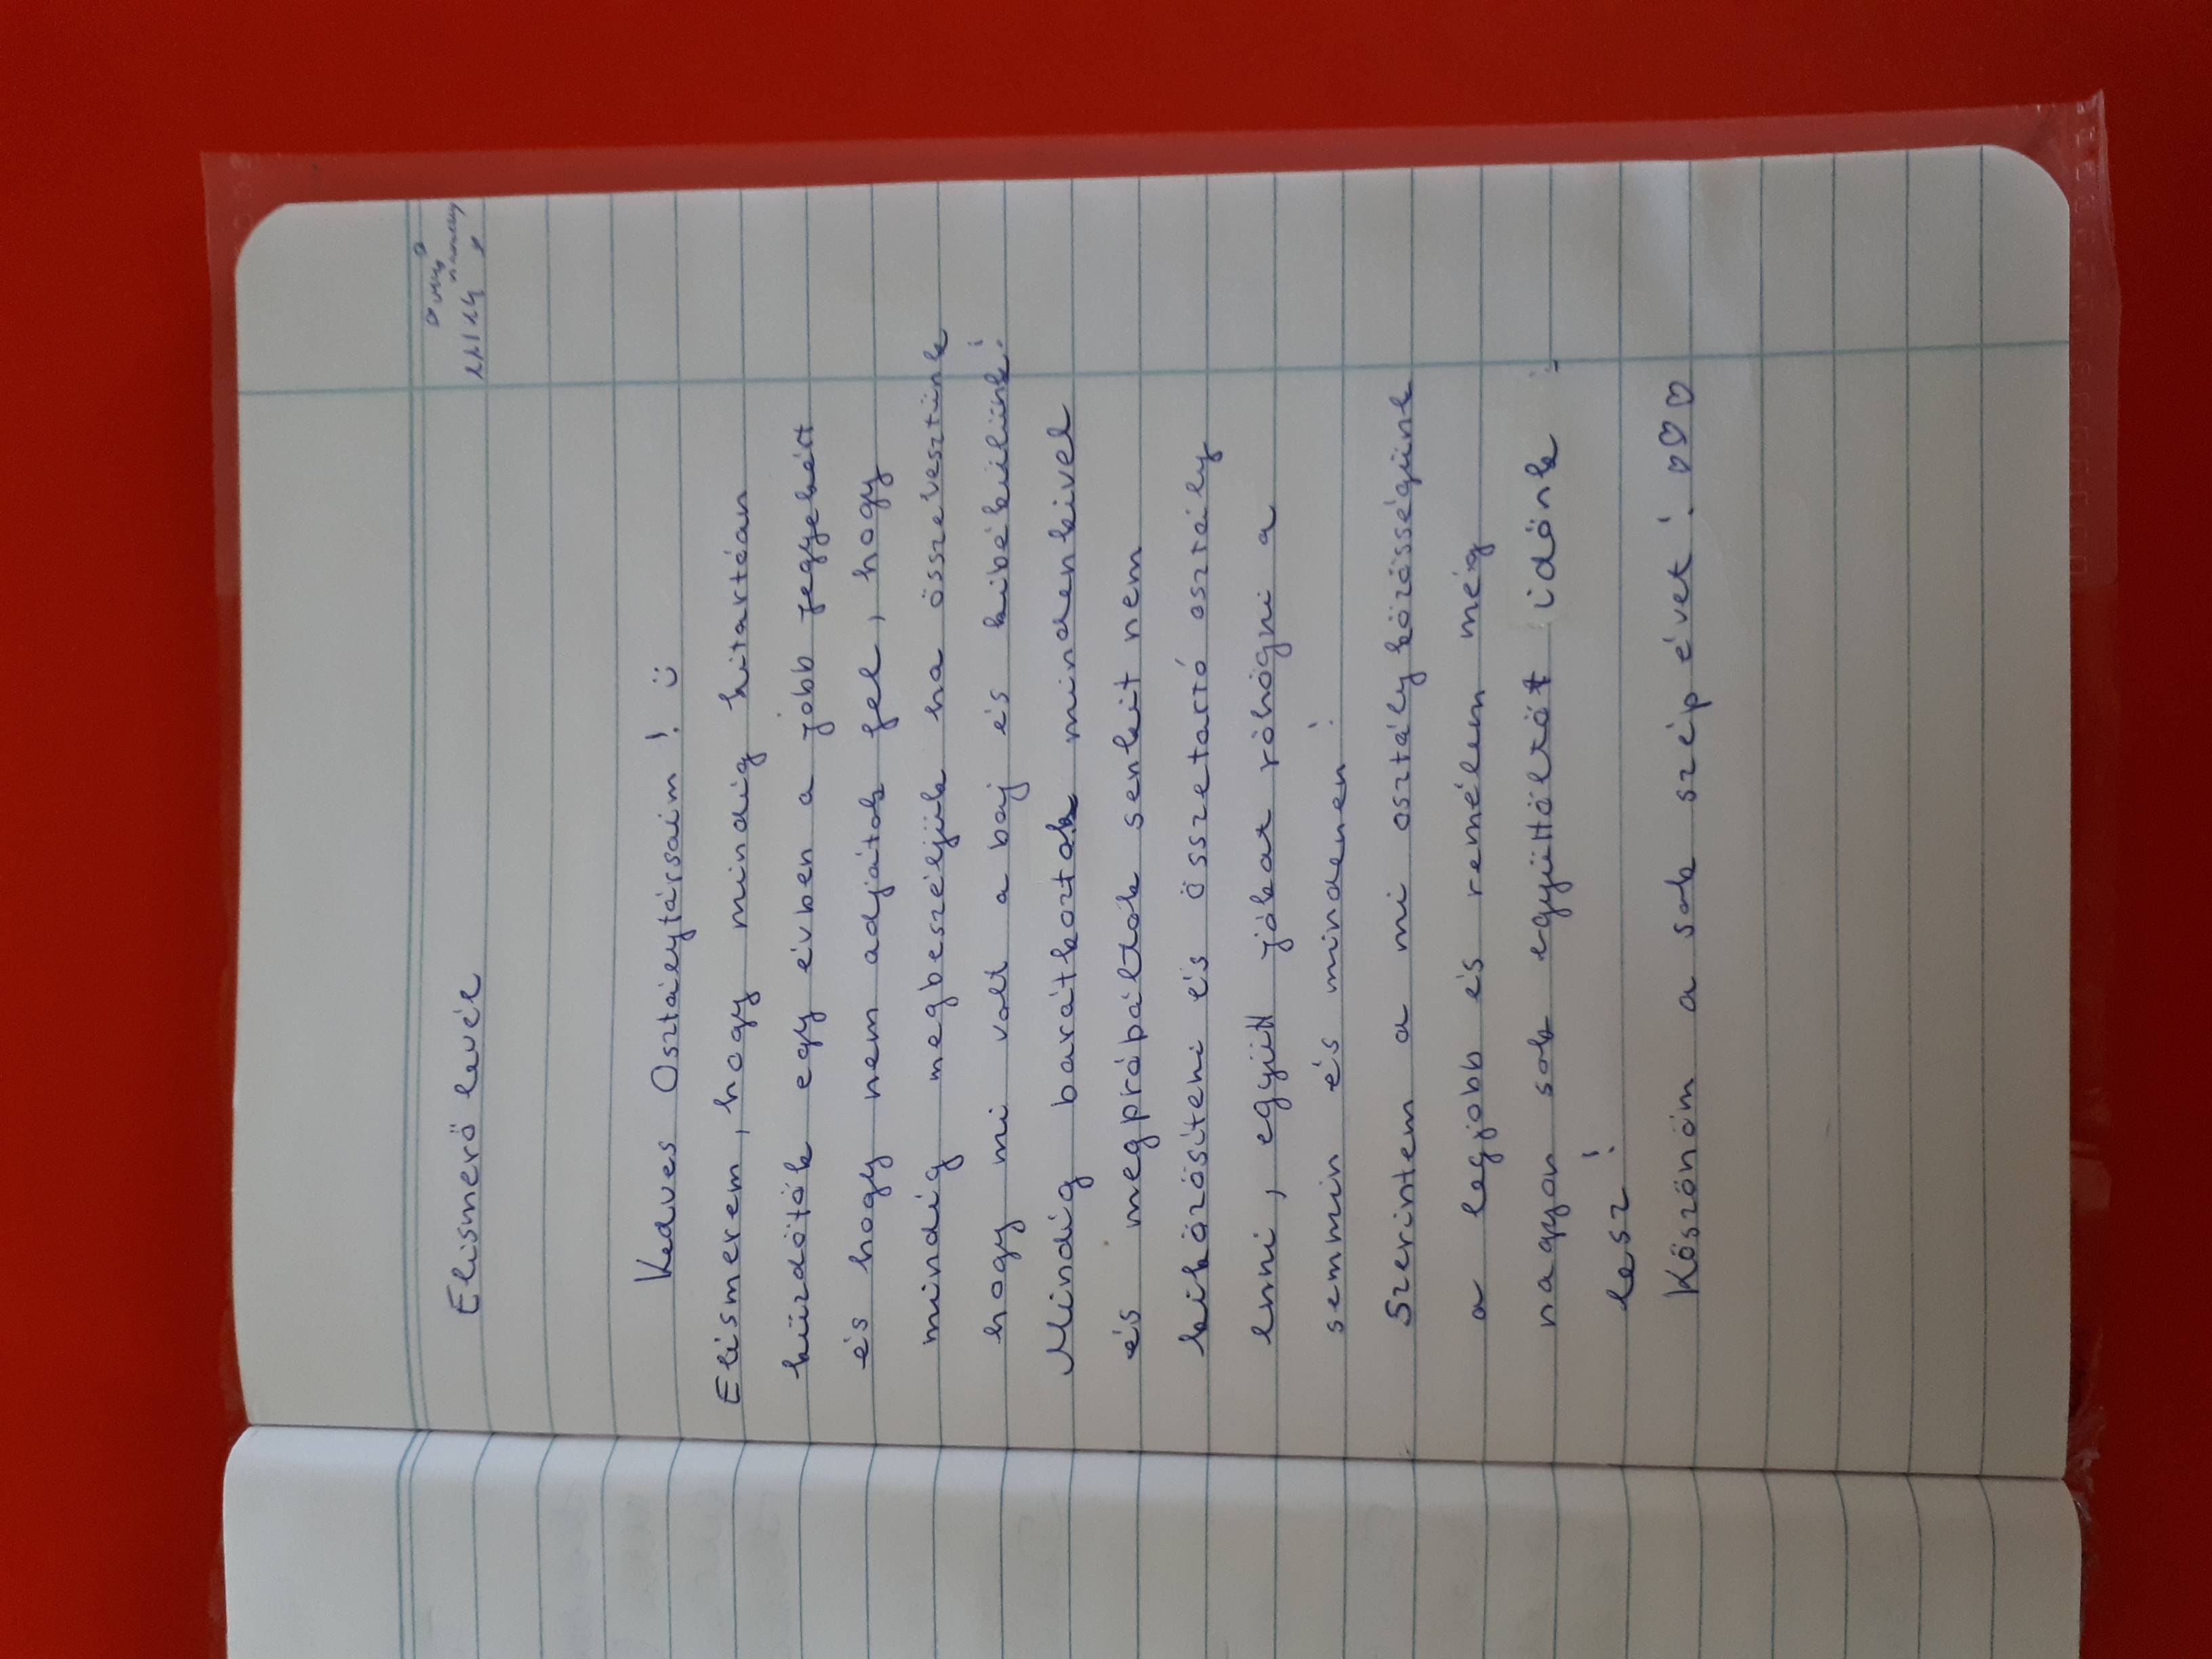 11/14
Elismerő levél
Kedves Osztálytársaim! ü
Elismerem, hogy mindig kitartóan
küzdötök egy évben a jobb jegyekért
és hogy nem adjátok fel, hogy
mindig megbeszéljük ha összevesztünk
hogy mi volt a baj és kibékülünk!
Mindig barátkoztok mindenkivel
és megpróbáltok senkit nem
kiközösíteni és összetartó osztály
lenni, együtt jókat röhögni a
semmin és mindenen!
Szerintem a mi osztályközösségünk
a legjobb és remélem még
nagyon sok együttöltöt időnk
lesz!
Köszönöm a sok szép évet! ♡♡♡